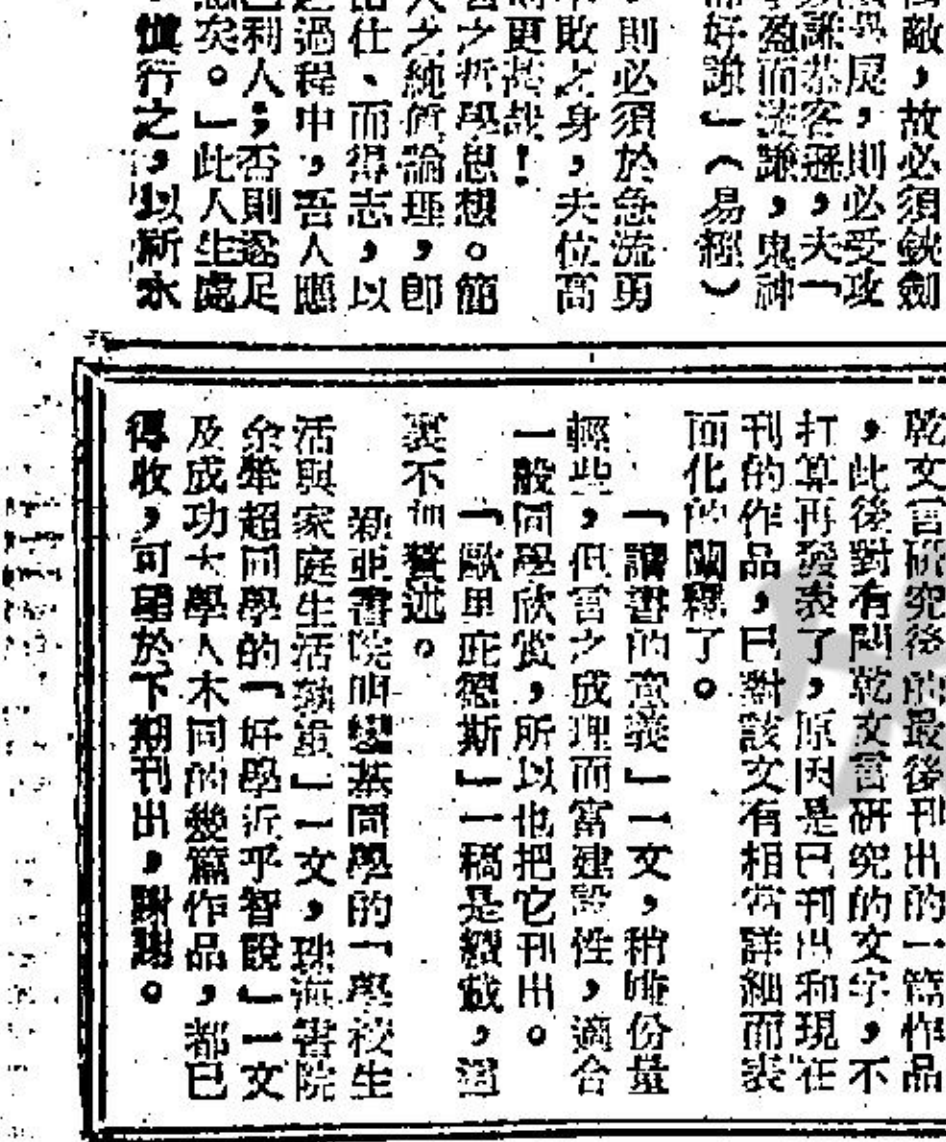 敵，故必須斂劍
畏，則必受攻
謙恭容遜，夫「
盈而流謙，鬼神
好謙」（易經）
，則必須於急流勇
敗之身，夫位高
則更甚哉！
之哲學思想。簡
之純質論理，即
仕、而得志，以
過程中，吾人應
利人；否則遂足
矣。」此人生處
慎行之，以新永
乾文言研究後的最後刊出的一篇作品
，此後對有關乾文言研究的文字，不
打算再發表了，原因是已刊出和現在
刊的作品，已對該文有相當詳細而表
而化的闡釋了。
「讀書的意義」一文，稍嫌份量
輕些，但言之成理而富建設性，適合
一般同學欣賞，所以也把它刊出。
「歐里庇德斯」一稿是續載，這
裏不加贅述。
新亞書院明基同學的「學校生
活與家庭生活孰重」一文，珠海書院
余犖超同學的「好學近乎智說」一文
及成功大學人木同的幾篇作品，都已
得收，可望於下期刊出，謝謝。